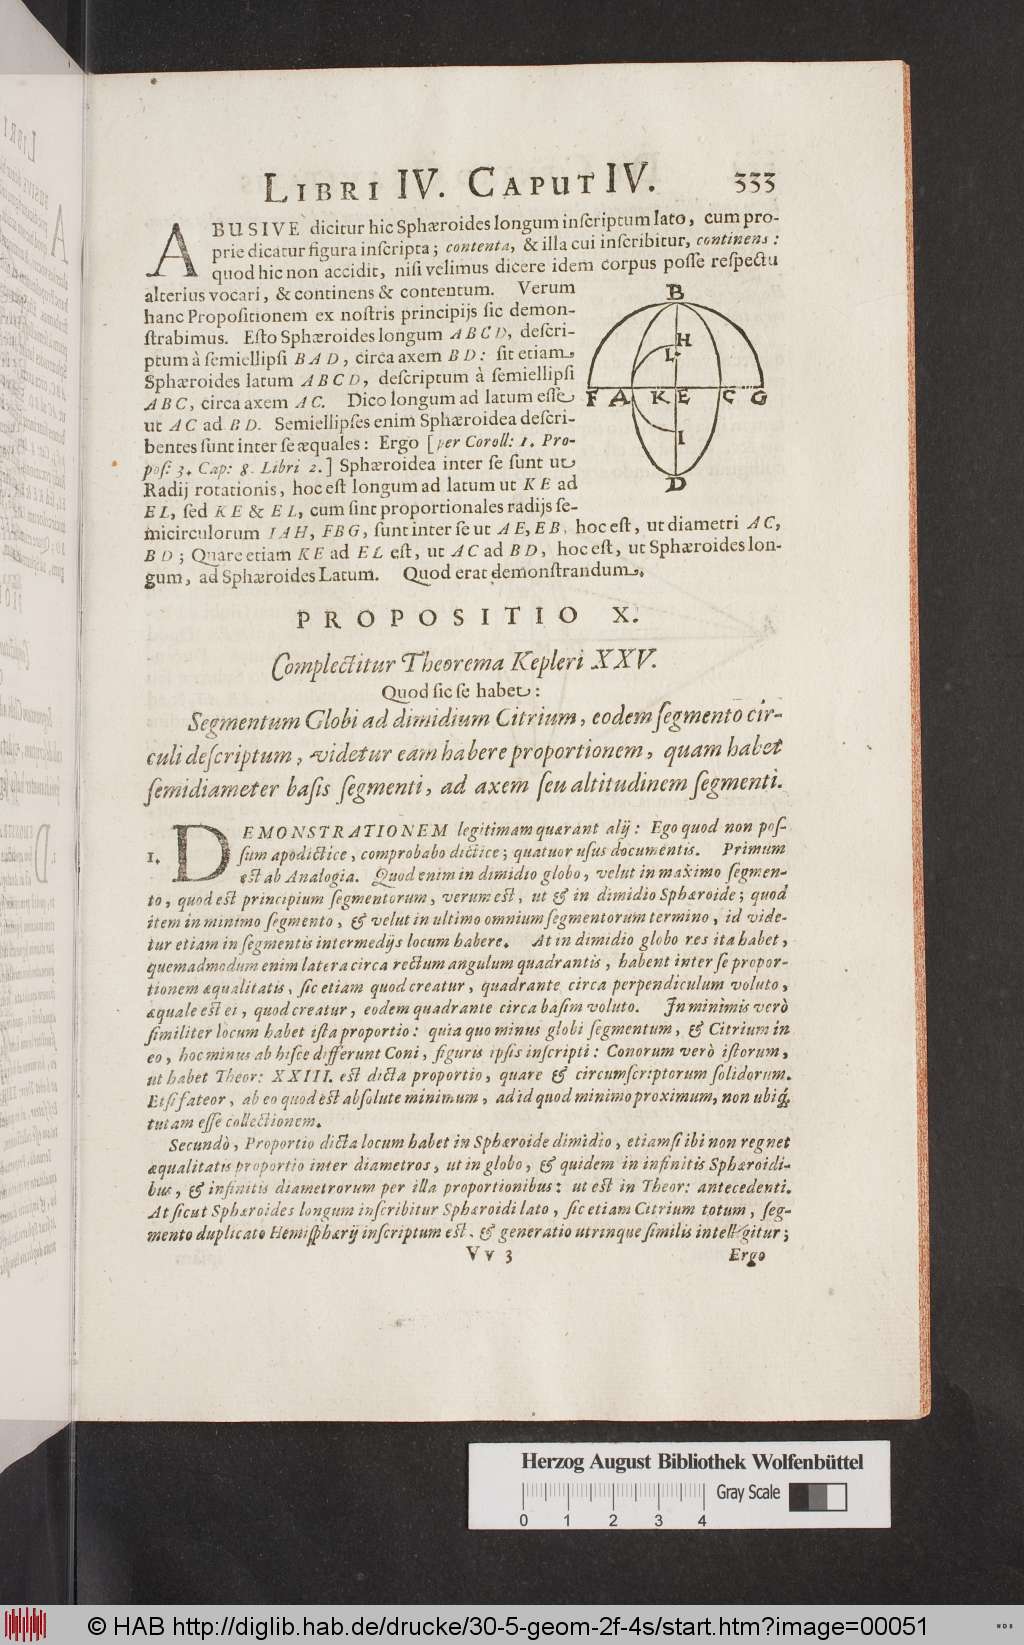 LIBRI IV. CAPUT IV. 333
ABUSIVE dicitur hic Sphæroides longum inſcriptum lato, cum pro-
prie dicatur figura inſcripta; contenta, & illa cui inſcribitur, continens:
quod hic non accidit, niſi velimus dicere idem corpus poſſe reſpectu
alterius vocari, & continens & contentum. Verum
hanc Propoſitionem ex noſtris principijs ſic demon-
ſtrabimus. Eſto Sphæroides longum ABCD, deſcri-
ptum à ſemiellipſi BAD, circa axem BD: ſit etiam
Sphæroides latum ABCD, deſcriptum à ſemiellipſi
ABC, circa axem AC. Dico longum ad latum eſſe
ut AC ad BD. Semiellipſes enim Sphæroidea deſcri-
bentes ſunt inter ſe æquales: Ergo [per Coroll: 1. Pro-
poſ: 3. Cap: 8. Libri 2.] Sphæroidea inter ſe ſunt ut
Radij rotationis, hoc eſt longum ad latum ut KE ad
EL, ſed KE & EL, cum ſint proportionales radijs ſe-
micirculorum IAH, FBG, ſunt inter ſe ut AE, EB, hoc eſt, ut diametri AC,
BD; Quare etiam KE ad EL eſt, ut AC ad BD, hoc eſt, ut Sphæroides lon-
gum, ad Sphæroides Latum. Quod erat demonſtrandum.
B
H
L
F A K E C G
I
D
PROPOSITIO X.
Complectitur Theorema Kepleri XXV.
Quod ſic ſe habet:
Segmentum Globi ad dimidium Citrium, eodem ſegmento cir-
culi deſcriptum, videtur eam habere proportionem, quam habet
ſemidiameter baſis ſegmenti, ad axem ſeu altitudinem ſegmenti.
DEMONSTRATIONEM legitimam quærant alij: Ego quod non poſ-
1. ſum apodictice, comprobabo dictice; quatuor uſus documentis. Primum
eſt ab Analogia. Quod enim in dimidio globo, velut in maximo ſegmen-
to, quod eſt principium ſegmentorum, verum eſt, ut & in dimidio Sphæroide; quod
item in minimo ſegmento, & velut in ultimo omnium ſegmentorum termino, id vide-
tur etiam in ſegmentis intermedijs locum habere. At in dimidio globo res ita habet,
quemadmodum enim latera circa rectum angulum quadrantis, habent inter ſe propor-
tionem æqualitatis, ſic etiam quod creatur, quadrante circa perpendiculum voluto,
æquale eſt ei, quod creatur, eodem quadrante circa baſim voluto. In minimis verò
ſimiliter locum habet iſta proportio: quia quo minus globi ſegmentum, & Citrium in
eo, hoc minus ab hiſce differunt Coni, figuris ipſis inſcripti: Conorum verò iſtorum,
ut habet Theor: XXIII. eſt dicta proportio, quare & circumſcriptorum ſolidorum.
Etſi fateor, ab eo quod eſt abſolute minimum, ad id quod minimo proximum, non ubiq;
tutam eſſe collectionem.
Secundò, Proportio dicta locum habet in Sphæroide dimidio, etiamſi ibi non regnet
æqualitatis proportio inter diametros, ut in globo, & quidem in infinitis Sphæroidi-
bus, & infinitis diametrorum per illa proportionibus: ut eſt in Theor: antecedenti.
At ſicut Sphæroides longum inſcribitur Sphæroidi lato, ſic etiam Citrium totum, ſeg-
mento duplicato Hemiſphærij inſcriptum eſt, & generatio utrinque ſimilis intelligitur;
Vv 3 Ergo
Herzog August Bibliothek Wolfenbüttel
Gray Scale
0 1 2 3 4
© HAB http://diglib.hab.de/drucke/30-5-geom-2f-4s/start.htm?image=00051